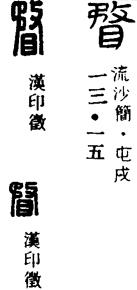 流沙簡·屯戍
一三·一五
漢印徵
漢印徵